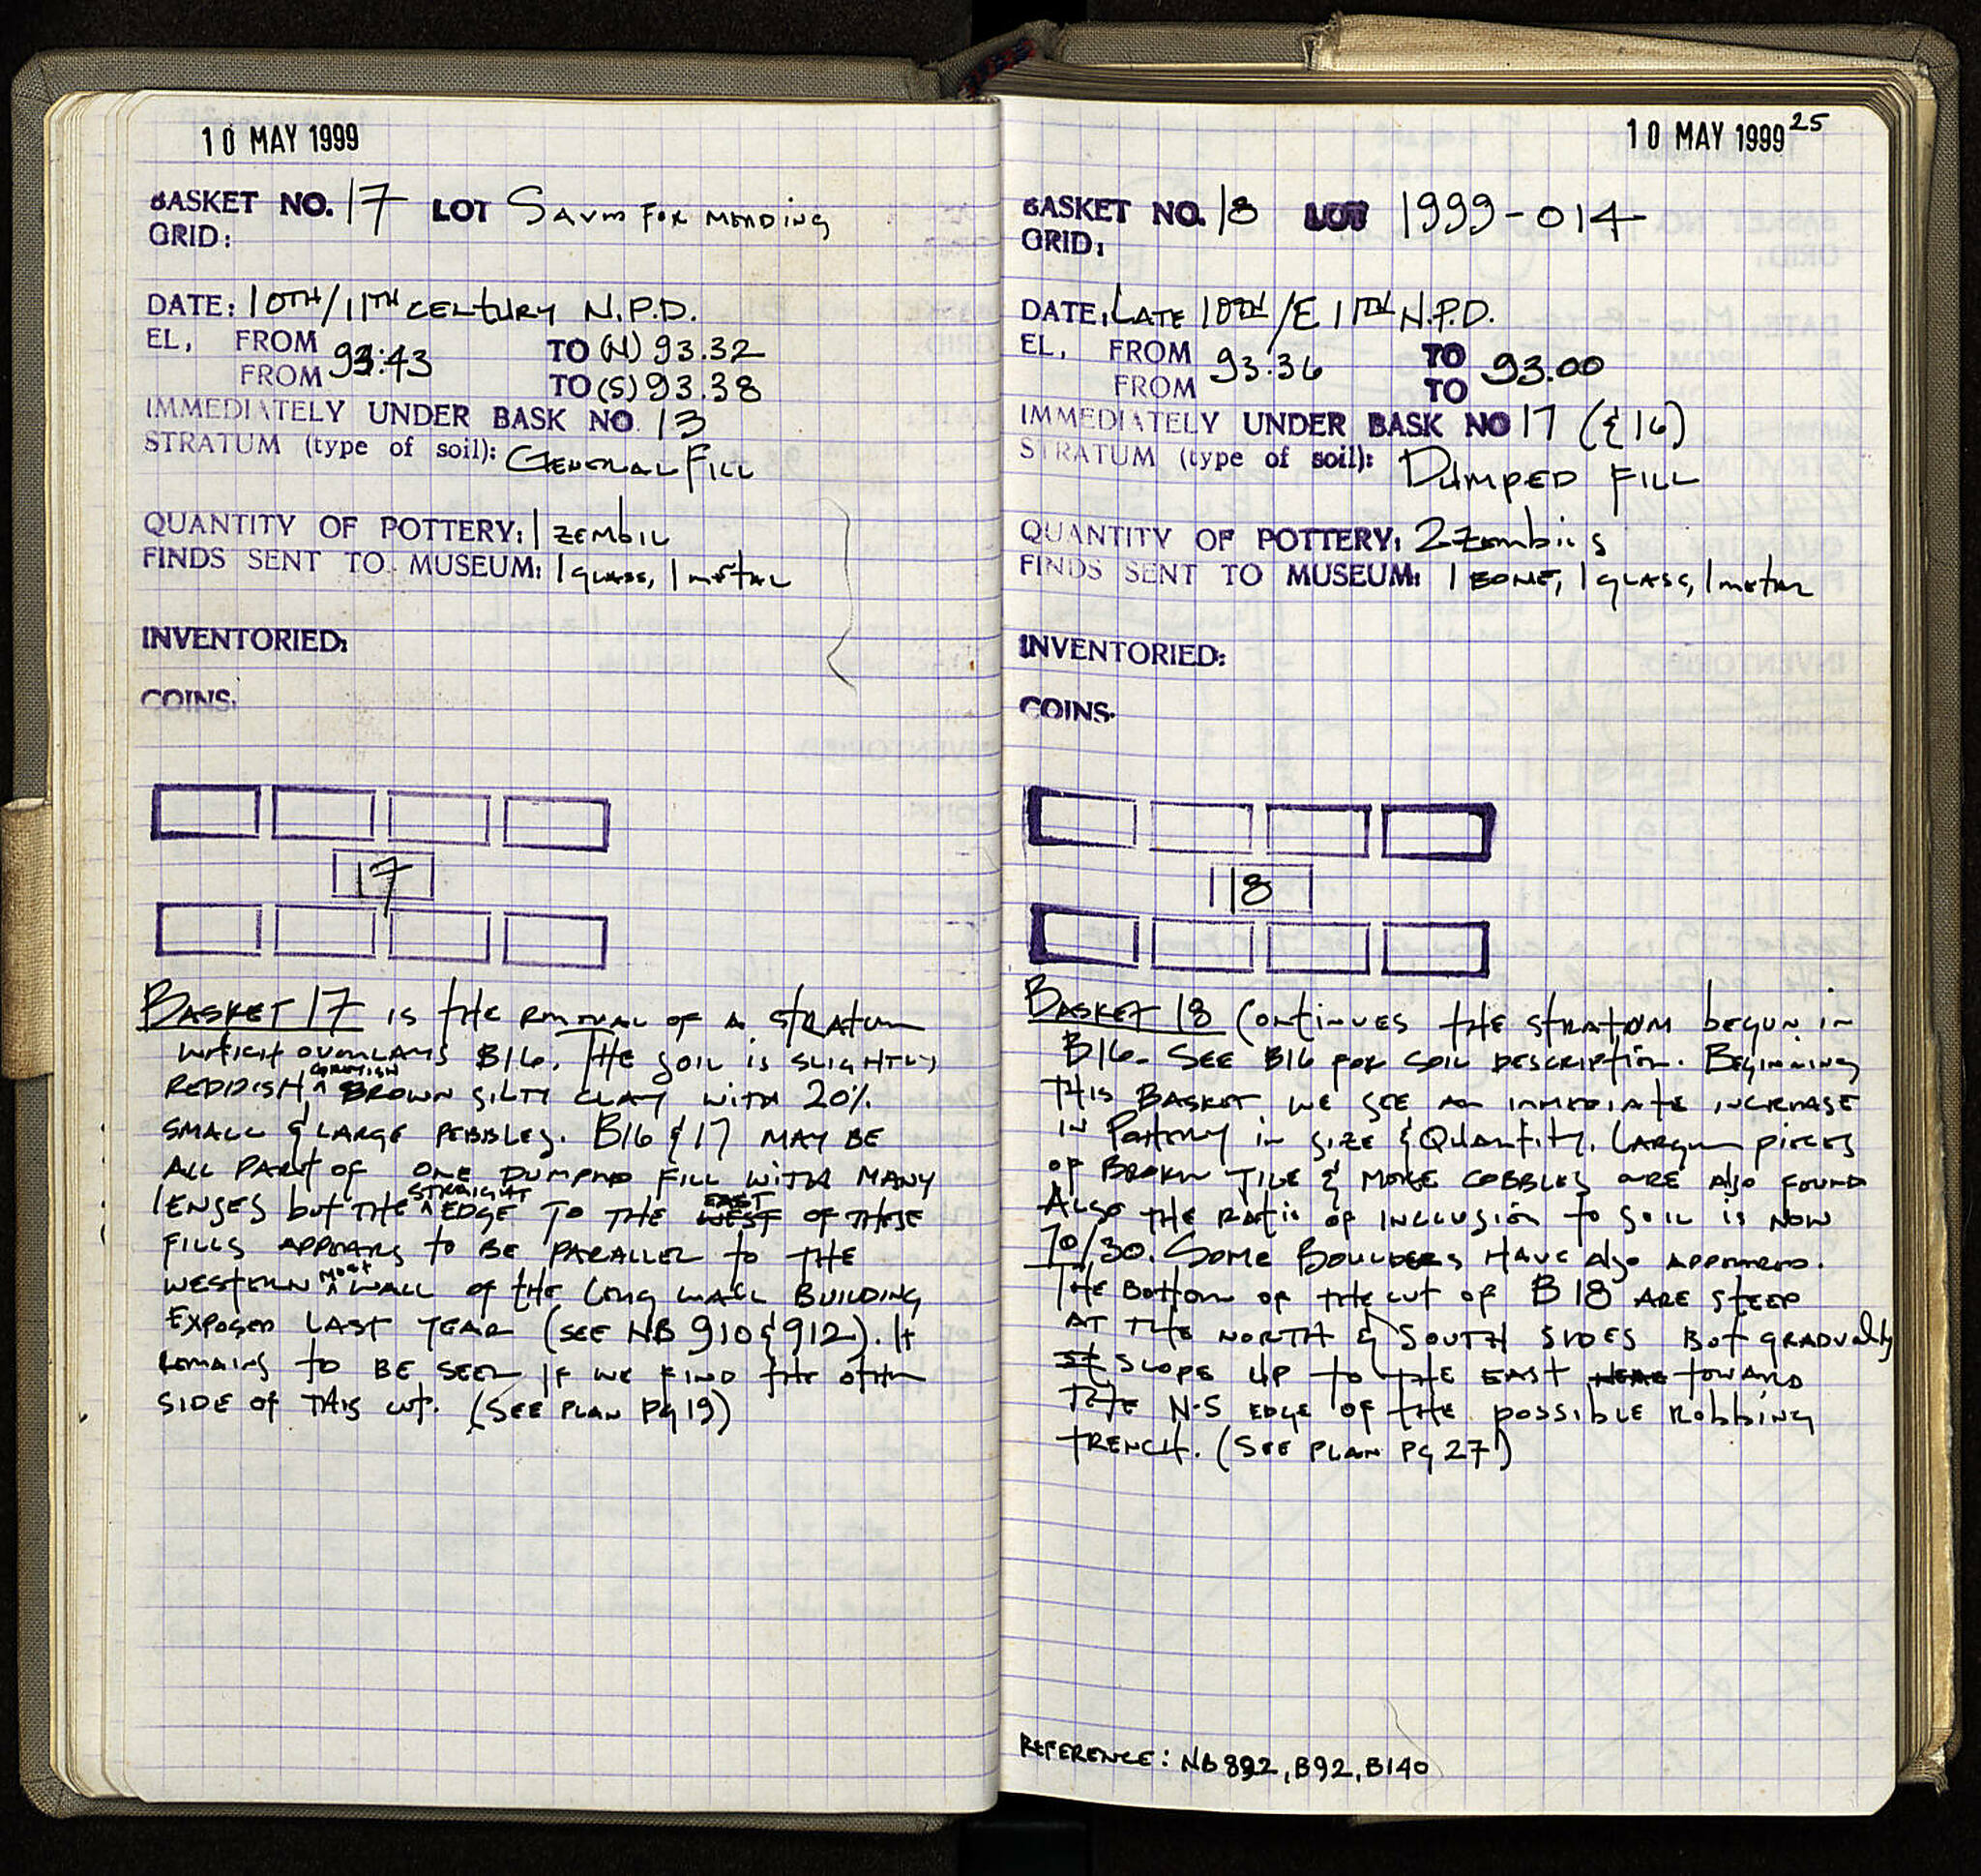 10 MAY 1999
BASKET NO. 17 LOT SAVED FOR MENDING
GRID:
DATE: 10TH/11TH CENTURY N.P.D.
EL, FROM 93.43 TO (N) 93.32
FROM TO (S) 93.38
IMMEDIATELY UNDER BASK NO 13
STRATUM (type of soil): GENERAL FILL
QUANTITY OF POTTERY: 1 ZEMBIL
FINDS SENT TO MUSEUM: 1 glass, 1 metal
INVENTORIED:
COINS:
17
BASKET 17 IS THE REMOVAL OF A STRATUM
WHICH OVERLAYS B16. THE SOIL IS SLIGHTLY
REDDISH GRAYISH BROWN SILTY CLAY WITH 20%
SMALL & LARGE PEBBLES. B16 & 17 MAY BE
ALL PART OF ONE DUMPED FILL WITH MANY
LENSES but THE STRAIGHT EDGE TO THE WEST EAST OF THESE
FILLS APPEARS to BE PARALLEL to THE
WESTERN MOST WALL of the LONG WALL BUILDING
EXPOSED LAST YEAR (SEE NB 910 & 912). It
REMAINS to BE SEEN IF WE FIND the other
SIDE of THIS cut. (SEE PLAN pg 19)
10 MAY 1999 25
BASKET NO. 18 LOT 1999-014
GRID:
DATE: LATE 10TH/E 11TH N.P.D.
EL, FROM 93.36 TO 93.00
FROM TO
IMMEDIATELY UNDER BASK NO 17 (& 16)
STRATUM (type of soil): DUMPED FILL
QUANTITY OF POTTERY: 2 Zembils
FINDS SENT TO MUSEUM: 1 BONE, 1 glass, 1 metal
INVENTORIED:
COINS:
18
BASKET 18 CONTINUES THE STRATUM BEGUN IN
B16. SEE B16 FOR SOIL DESCRIPTION. BEGINNING
THIS BASKET WE SEE AN IMMEDIATE INCREASE
IN Pottery in SIZE & Quantity. Larger pieces
of BROKEN TILE & MORE COBBLES ARE Also found
Also the ratio of INCLUSION to SOIL is NOW
70/30. SOME BOULDERS HAVE Also APPEARED.
THE Bottom of the cut of B 18 ARE STEEP
AT THE NORTH & SOUTH SIDES BUT gradually
SLOPE UP to the EAST toward
THE N-S EDGE of the possible Robbing
TRENCH. (SEE PLAN Pg 27)
REFERENCE: NB 892, B92, B140